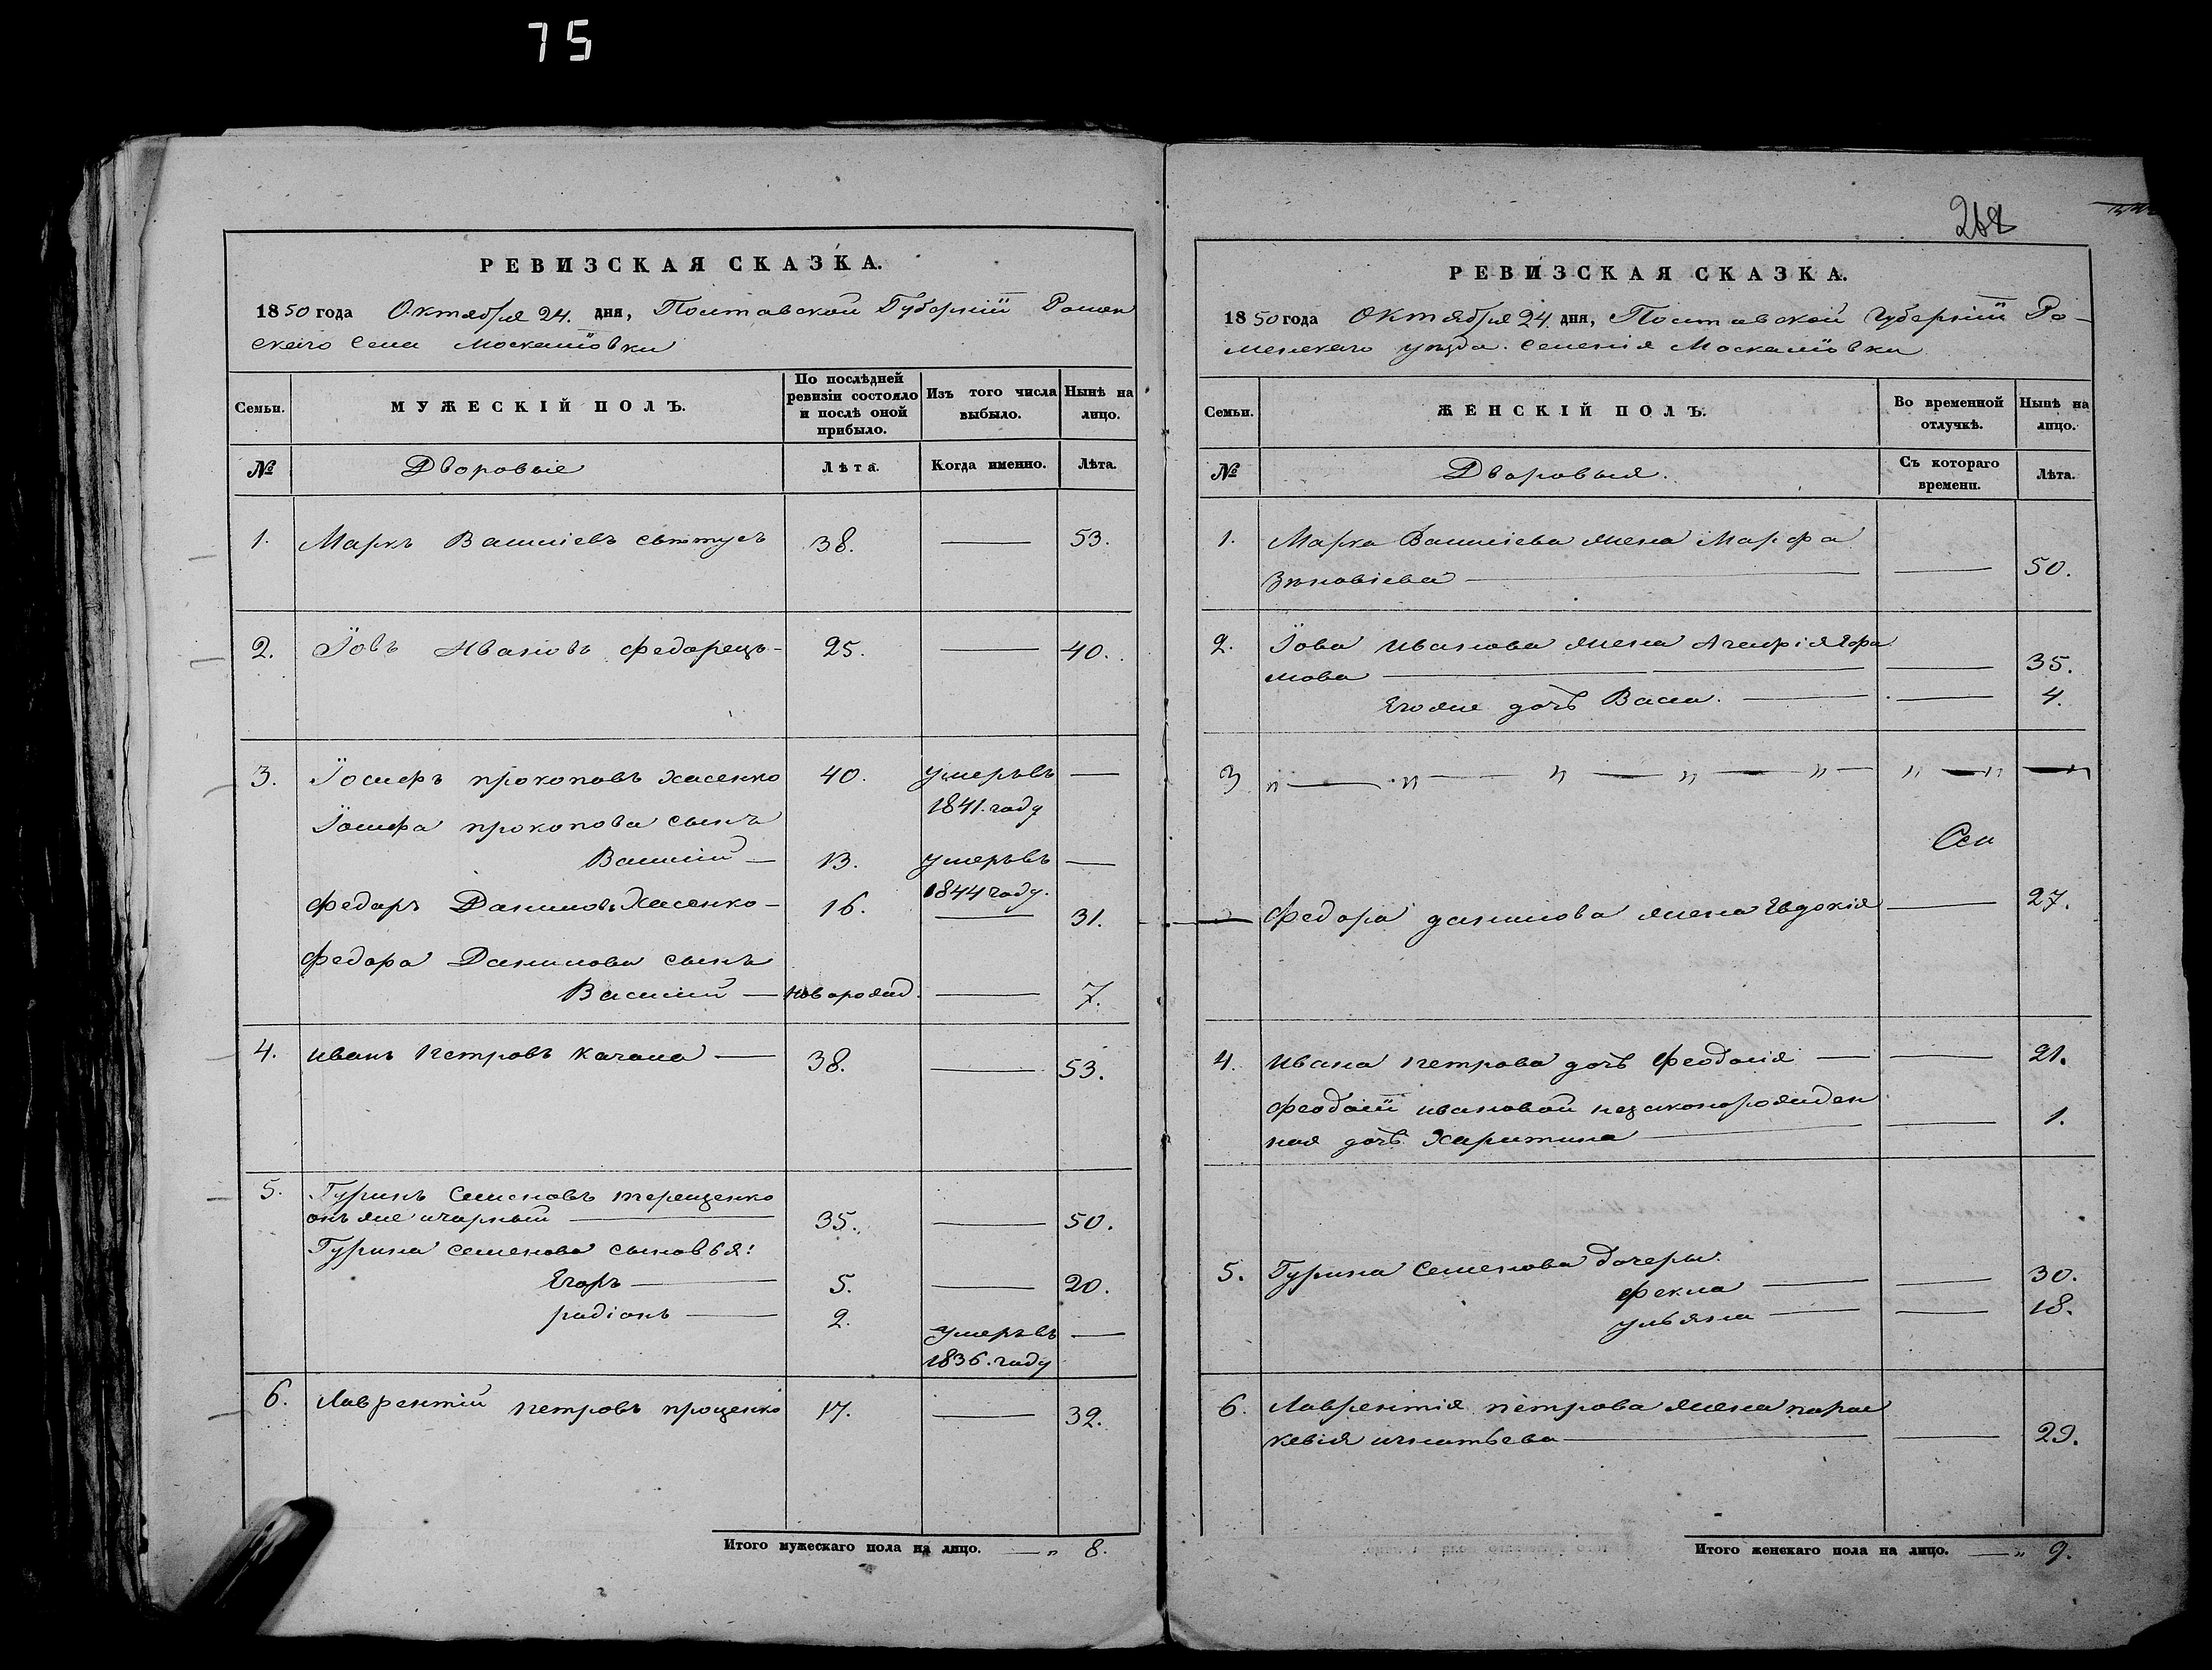 75
РЕВИЗСКАЯ СКАЗКА.
1850 года Октября 24. дня, Полтавской Губерніи Ромен
скаго Села Москалiовки
Семьи.
МУЖЕСКІЙ ПОЛЪ.
По послѣдней ревизіи состояло и послѣ оной прибыло.
Изъ того числа выбыло.
Нынѣ на лицо.
№
Дворовые
Лѣта.
Когда именно.
Лѣта.
1. Маркъ Василіевъ 38. — 53.
2. Іовъ Ивановъ Федорецъ- 25. — 40.
3. Іосифъ прокоповъ Хасенко 40. умеръ въ —
1841. году
Іосифа прокопова сынъ
Василій — 13. умеръ въ —
1844 году.
Федоръ Даниловъ Хасенко- 16. — 31.
Федора Данилова сынъ
Василий — новорожд. — 7.
4. Иванъ Петровъ Качала — 38. — 53.
5. Гуринъ Семеновъ терещенко
онъ же — 35. — 50.
Гурина Семенова сыновья:
Егоръ — 5. — 20.
радіонъ — 2. умеръ въ —
1836. году
6. Лаврентій петровъ проценко 17. — 32.
Итого мужескаго пола на лицо. — „ 8.
268
РЕВИЗСКАЯ СКАЗКА.
1850 года Октября 24. дня, Полтавской Губерніи Ро-
менскаго уѣзда. Селенія Москалiовки
Семьи.
ЖЕНСКІЙ ПОЛЪ.
Во временной отлучкѣ.
Нынѣ на лицо.
№
Дворовыя.
Съ котораго времени.
Лѣта.
1. Марка Василіева жена Марфа
Зѣновіева — — 50.
2. Іова Иванова жена
мова — — 35.
Егоже дочь Васса. — — 4.
3 „ — „ — „ — „ — „ — „ — „ — „
Федора данилова жена Евдокія — 27.
4. Ивана петрова дочь Феодосія — — 21.
Феодосіи ивановой незаконорожден
ная дочь Харитина — — 1.
5. Гурина Семенова дочери:
Фекла — — 30.
ульяна — — 18.
6. Лаврентія петрова жена парас
кевія игнатьева — — 29.
Итого женскаго пола на лицо. — „ 9.